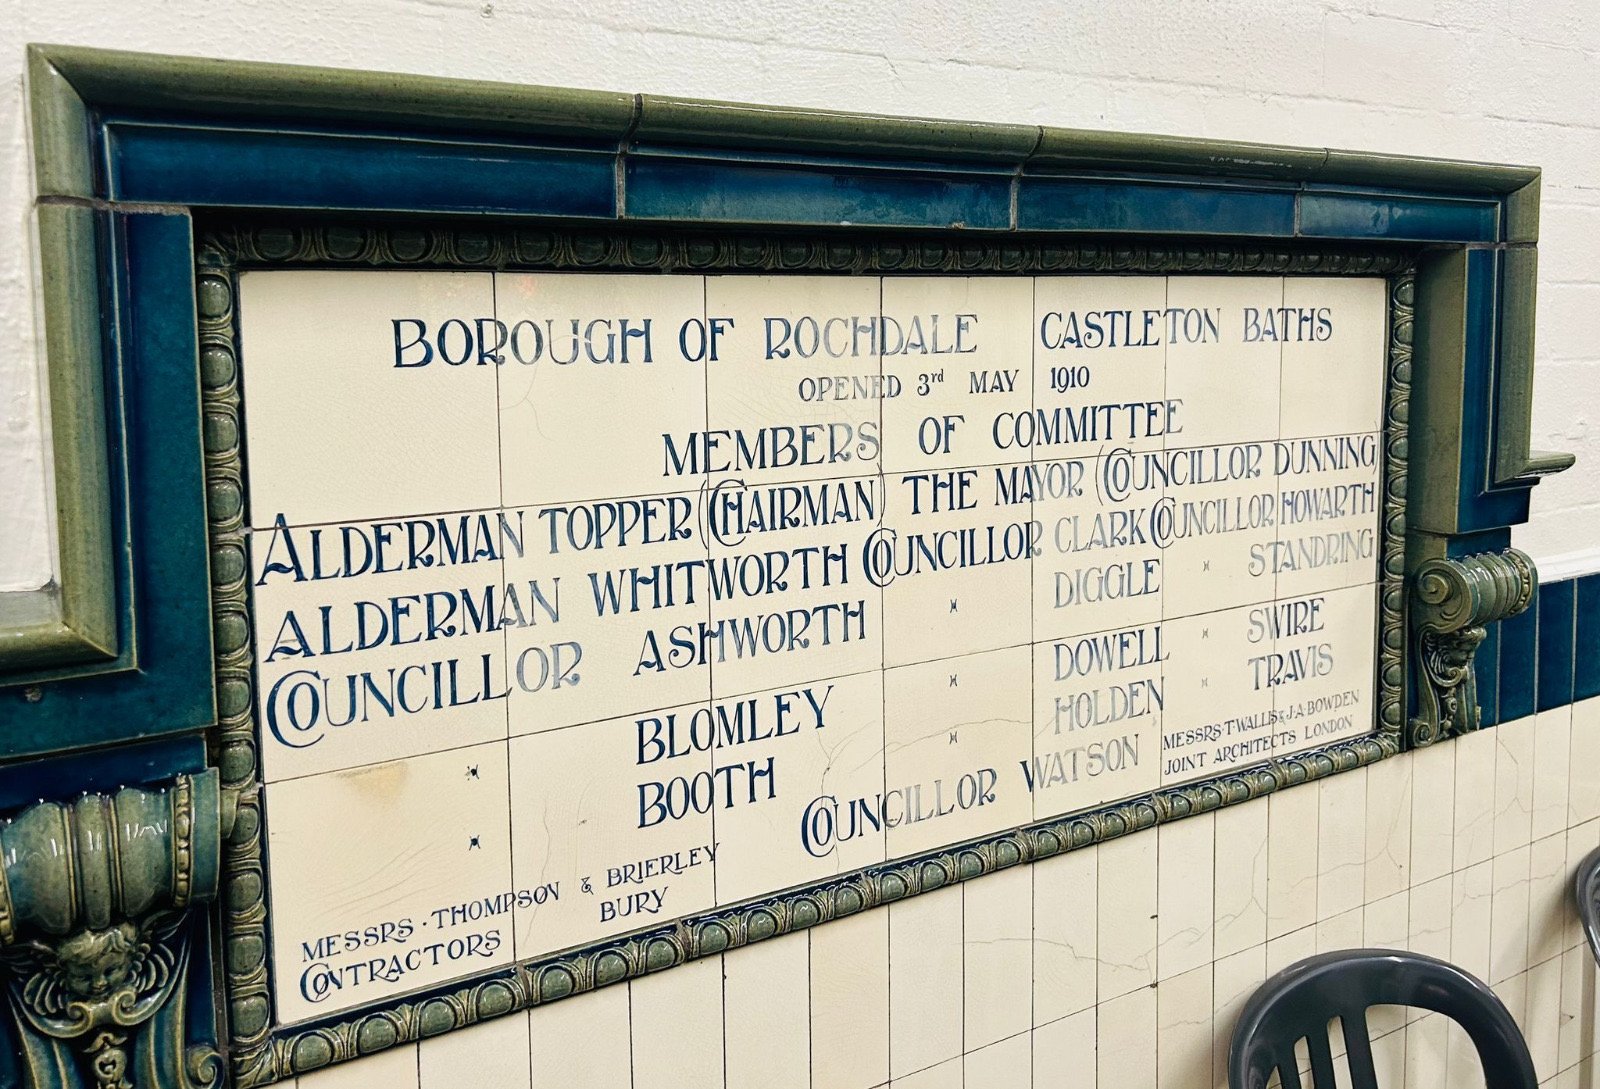 BOROUGH OF ROCHDALE CASTLETON BATHS
OPENED 3rd MAY 1910
MEMBERS OF COMMITTEE
ALDERMAN TOPPER (CHAIRMAN) THE MAYOR (COUNCILLOR DUNNING)
ALDERMAN WHITWORTH COUNCILLOR CLARK COUNCILLOR HOWARTH
COUNCILLOR ASHWORTH " DIGGLE " STANDRING
" BLOMLEY " DOWELL " SWIRE
" BOOTH " HOLDEN " TRAVIS
COUNCILLOR WATSON
MESSRS · THOMPSON & BRIERLEY
CONTRACTORS BURY
MESSRS · T · WALLIS & J · A · BOWDEN
JOINT ARCHITECTS LONDON